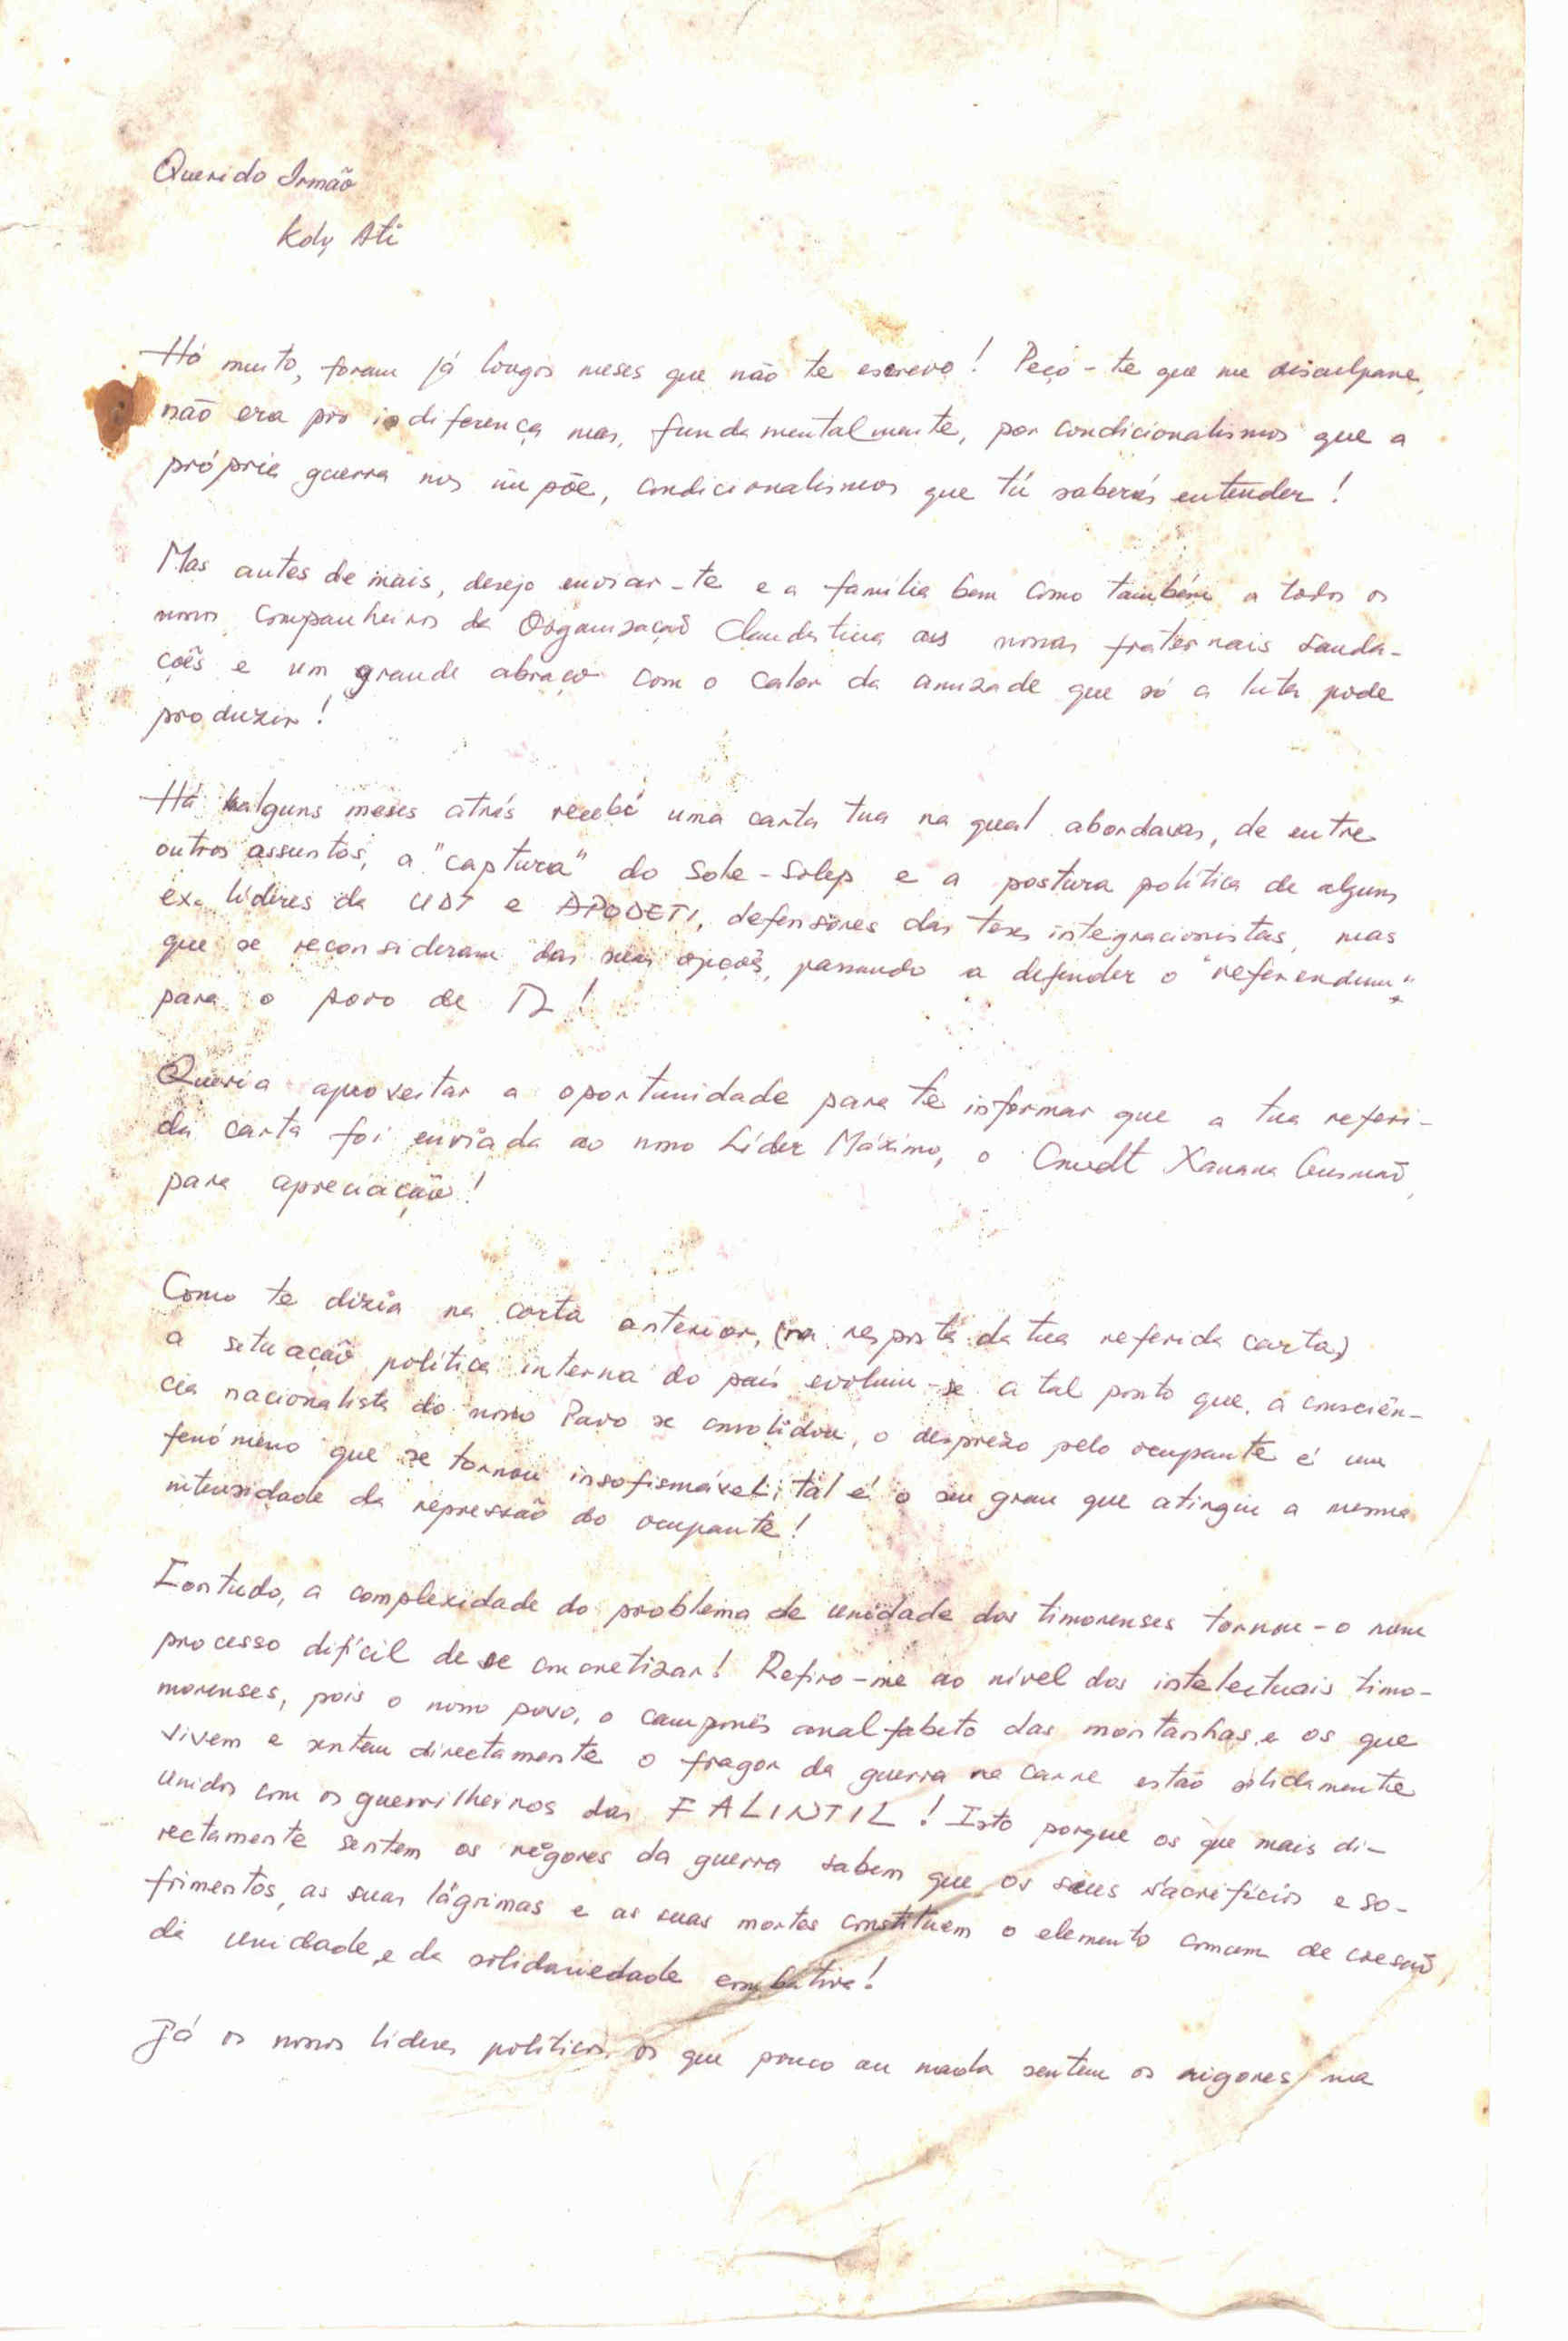 Querido Irmão
Koly Ati
Há muito, foram já longos meses que não te escrevo! Peço-te que me disculpare,
não era por indiferença mas, fundamentalmente, por condicionalismos que a
própria guerra nos impõe, condicionalismos que tú saberás entender!
Mas antes de mais, desejo enviar-te e a familia bem como também a todos os
nossos companheiros da Organização Clandestina as nossas fraternais sauda-
ções e um grande abraço com o calor da amizade que só a luta pode
produzir!
Há alguns meses atrás recebi uma carta tua na qual abordavas, de entre
outros assuntos, a "captura" do Sole-Solep e a postura política de alguns
ex. líderes da UDT e APODETI, defensores das teses integracionistas, mas
que se reconsideram das suas opções, passando a defender o "referendum"
para o povo de TL!
Queria aproveitar a oportunidade para te informar que a tua referi-
da carta foi enviada ao nosso Líder Máximo, o Cmdt Xanana Gusmão,
para apreciação!
Como te dizia na carta anterior, (na resposta da tua referida carta)
a situação política interna do país evoluiu-se a tal ponto que, a consciên-
cia nacionalista do nosso Povo se consolidou, o desprezo pelo ocupante é um
fenómeno que se tornou insofismável; tal é o seu grau que atingiu a mesma
intensidade da repressão do ocupante!
Contudo, a complexidade do problema de unidade dos timorenses tornou-o num
processo difícil de se concretizar! Refiro-me ao nível dos intelectuais timo-
morenses, pois o nosso povo, o camponês analfabeto das montanhas e os que
vivem e sentem directamente o fragor da guerra na carne estão sólidamente
unidos com os guerrilheiros das FALINTIL! Isto porque os que mais di-
rectamente sentem os rigores da guerra sabem que os seus sacrifícios e so-
frimentos, as suas lágrimas e as suas mortes constituem o elemento comum de coesão,
da unidade e da solidariedade combativa!
Já os nossos líderes políticos, os que pouco ou nada sentem os rigores na